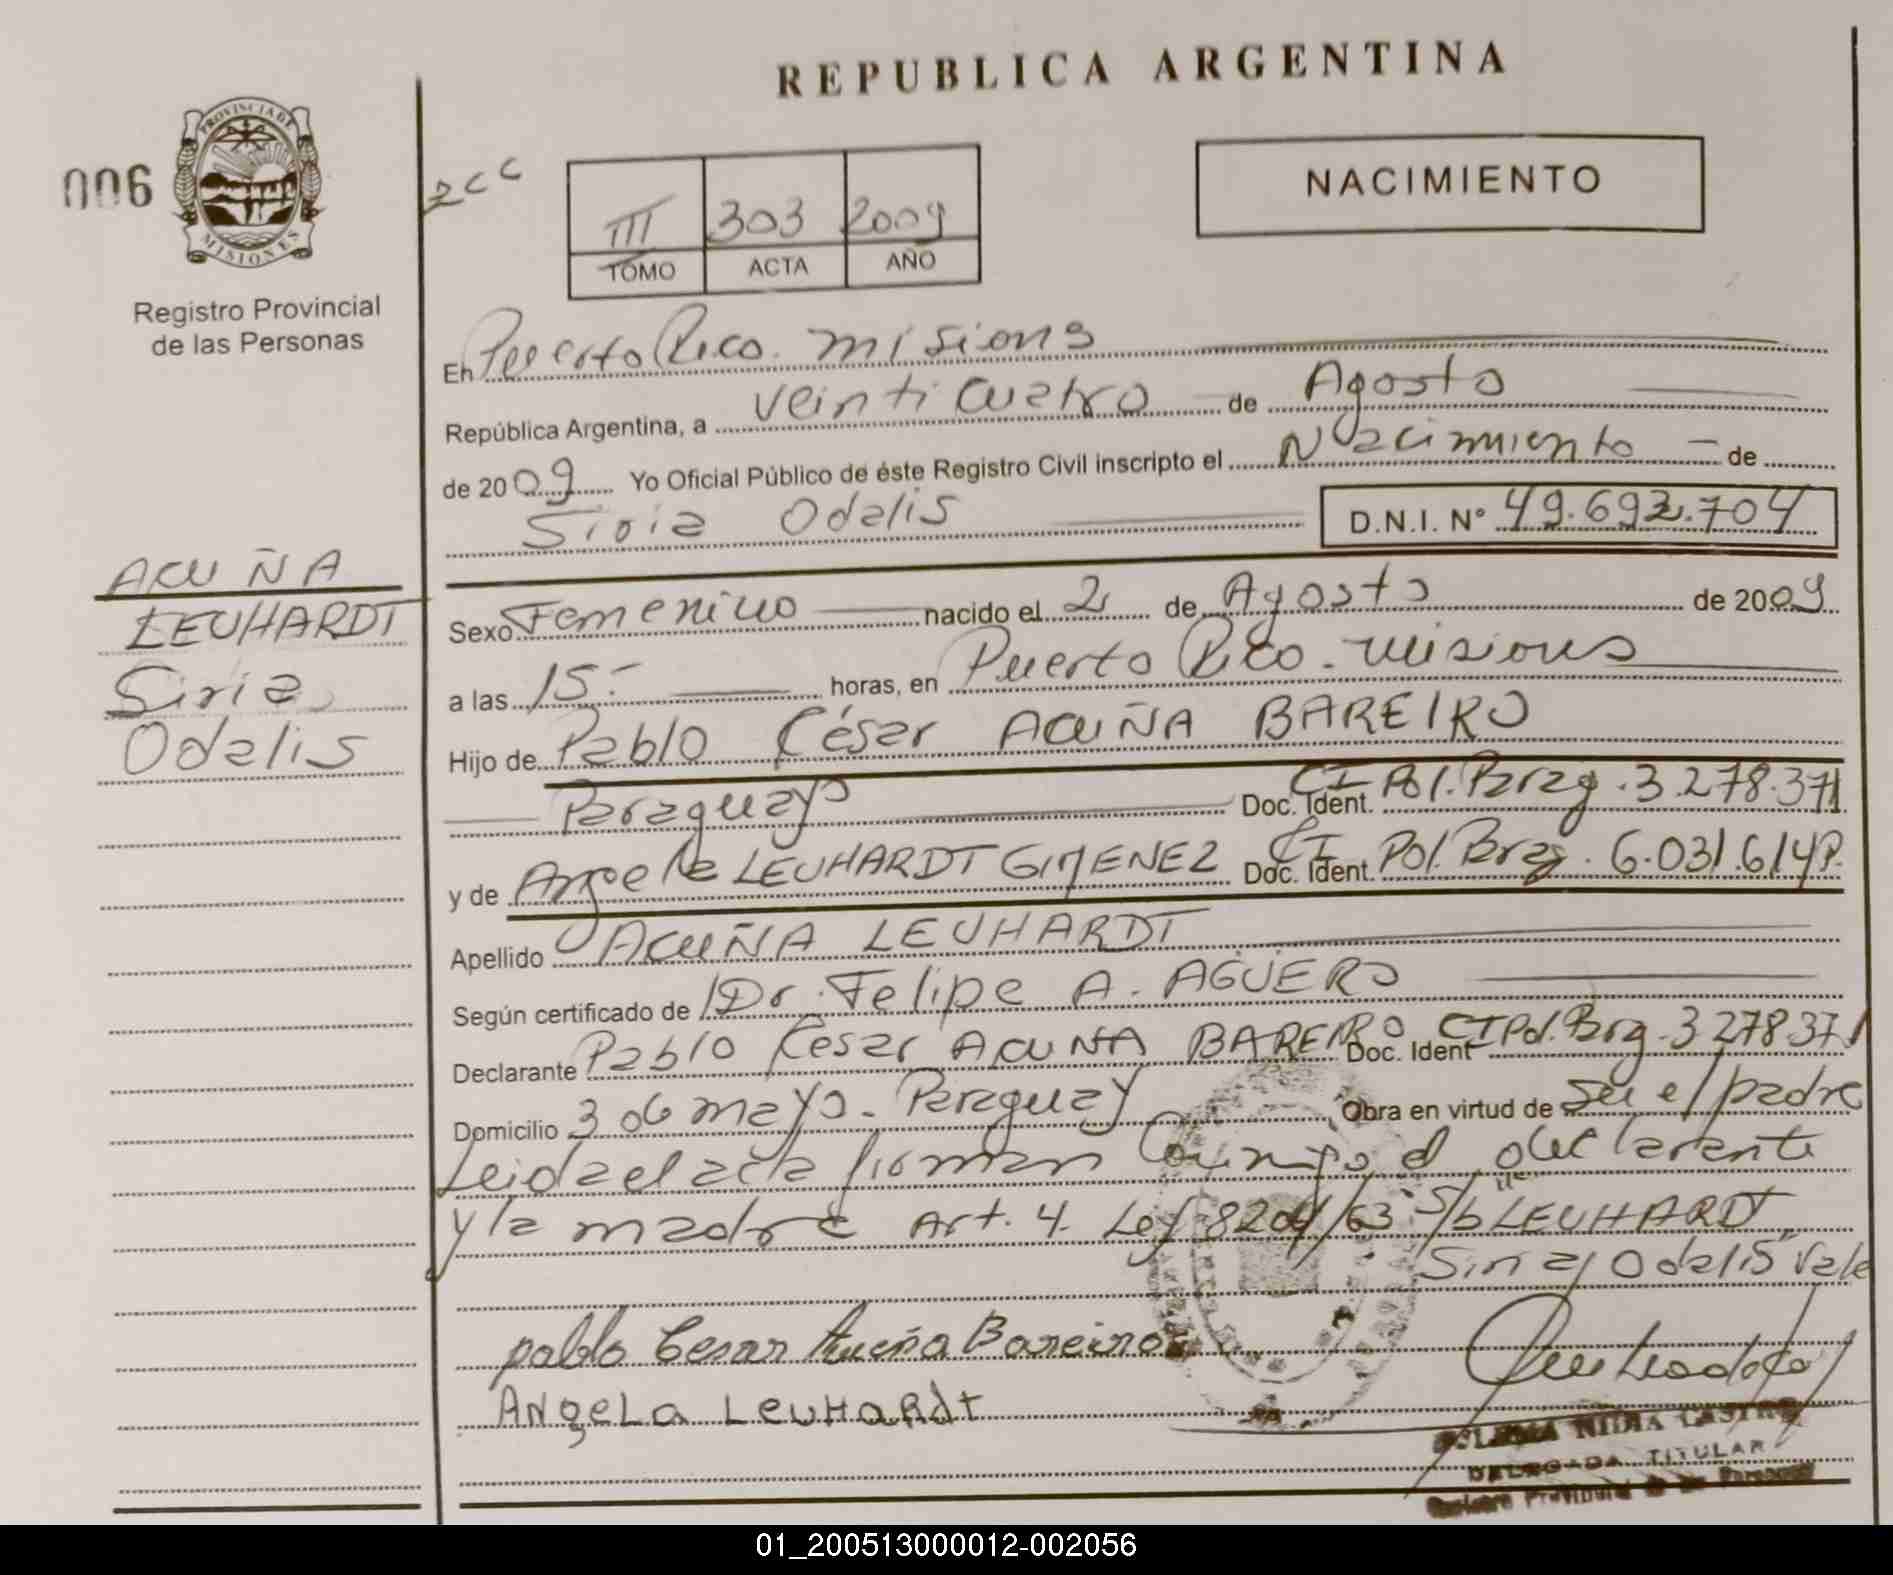 REPUBLICA ARGENTINA
006
PROVINCIA DE
MISIONES
Registro Provincial
de las Personas
2CC
III 303 2009
TOMO ACTA AÑO
NACIMIENTO
En Puerto Rico. Misiones
República Argentina, a veinticuatro de Agosto
de 2009 Yo Oficial Público de éste Registro Civil inscripto el Nacimiento - de
Siria Odalis D.N.I. Nº 49.692.704
ACUÑA
LEUHARDT
Siria
Odalis
Sexo Femenino nacido el 2 de Agosto de 2009
a las 15.- horas, en Puerto Rico - Misiones
Hijo de Pablo César ACUÑA BAREIRO
Paraguayo Doc. Ident. CI Pol. Parag. 3.278.371
y de Angela LEUHARDT GIMENEZ Doc. Ident. CI Pol. Prag. 6.031.614 P.
Apellido ACUÑA LEUHARDT
Según certificado de Dr. Felipe A. AGÜERO
Declarante Pablo César ACUÑA BAREIRO Doc. Ident CI Pol. Prg. 3278371
Domicilio 3 de mayo - Paraguay Obra en virtud de ser el padre
Leida el acta firman conmigo el declarante
y la madre Art. 4. Ley 8204/63 S/b "LEUHARDT
Siria y Odalis" Vale
pablo Cesar Acuña Bareiro
Angela Leuhardt
NIDIA CASTRO
DELEGADA TITULAR
Registro Provincial de las Personas
01_200513000012-002056